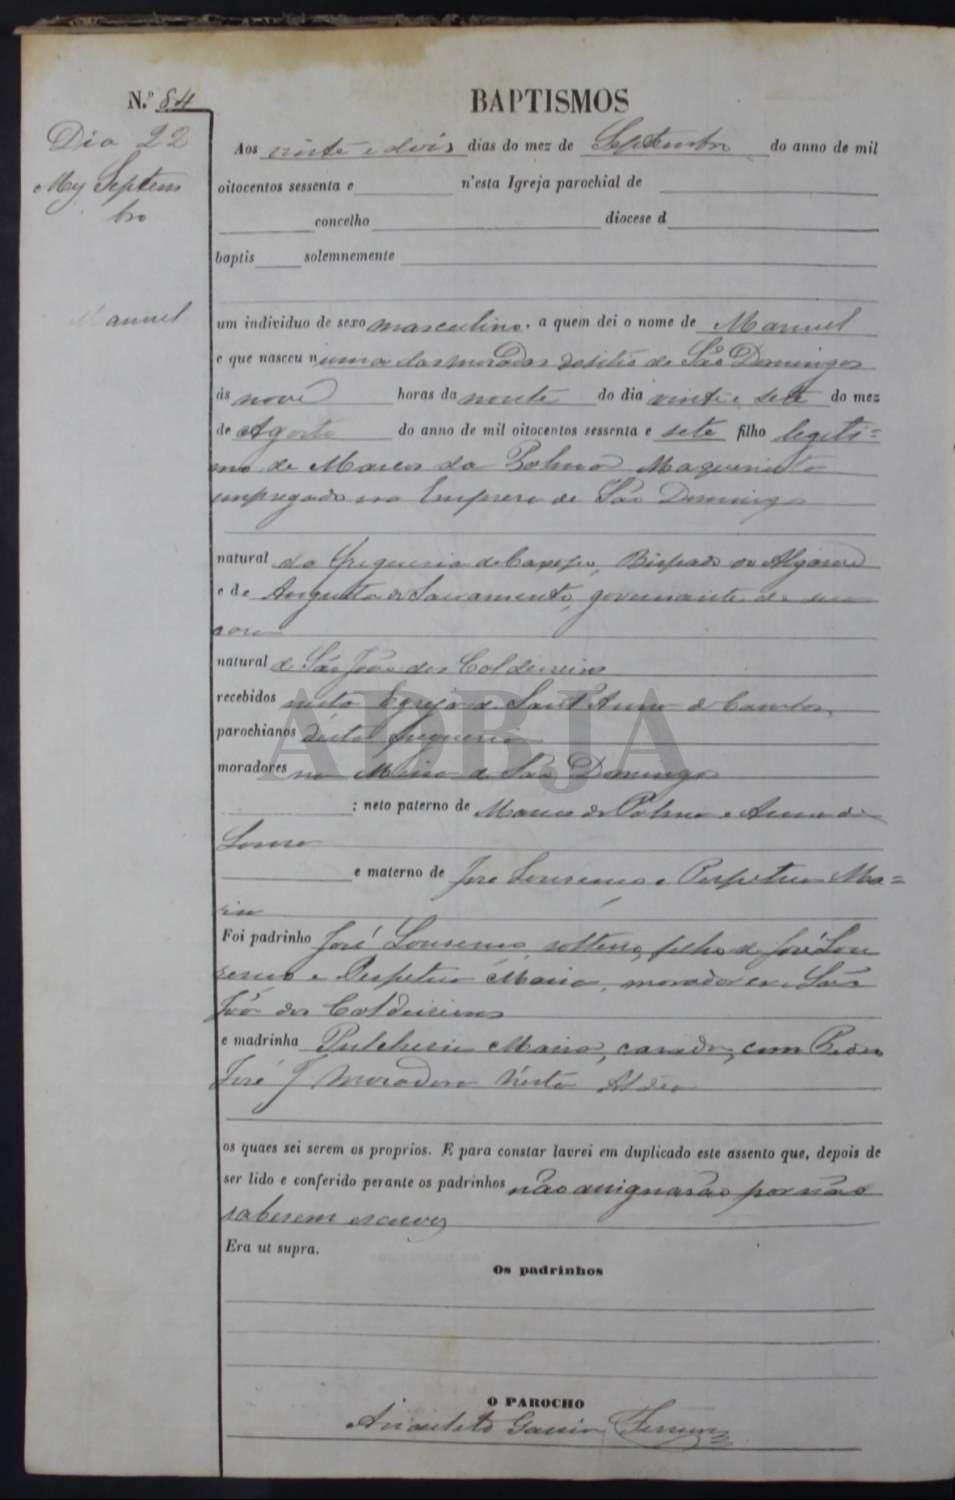 N.º 84
BAPTISMOS
Dia 22
Mez Septem
bro
Aos vinte e dois dias do mez de Septembro do anno de mil
oitocentos sessenta e n'esta Igreja parochial de
concelho diocese d
baptis solemnemente
Manuel
um individuo de sexo masculino, a quem dei o nome de Manuel
e que nasceu numa das moradas do sitio de São Domingos
ás nove horas da noute do dia vinte e sete do mez
de Agosto do anno de mil oitocentos sessenta e sete filho legiti=
mo de Marcos da Palma
empregado na Empresa de São Domingos
natural da freguesia de Bispado do Algarve
e de Augusta do Sacramento, governante de sua
casa
natural de São João dos Caldeireiros
recebidos nesta Egreja de Sant'Anna de Cambas,
parochianos desta freguesia
moradores na Mina de São Domingos
; neto paterno de Marcos da Palma e Anna de
e materno de José Lourenço e Perpetua Ma=
ria
Foi padrinho José Lourenço, solteiro, filho de José Lou
renço e Perpetua Maria, morador em São
João dos Caldeireiros
e madrinha Pulcheria Maria, casada, com Pedro
José moradora nesta Aldea
os quaes sei serem os proprios. E para constar lavrei em duplicado este assento que, depois de
ser lido e conferido perante os padrinhos não assignarão por não
saberem escever
Era ut supra.
Os padrinhos
O PAROCHO
Garcia
ADBJA